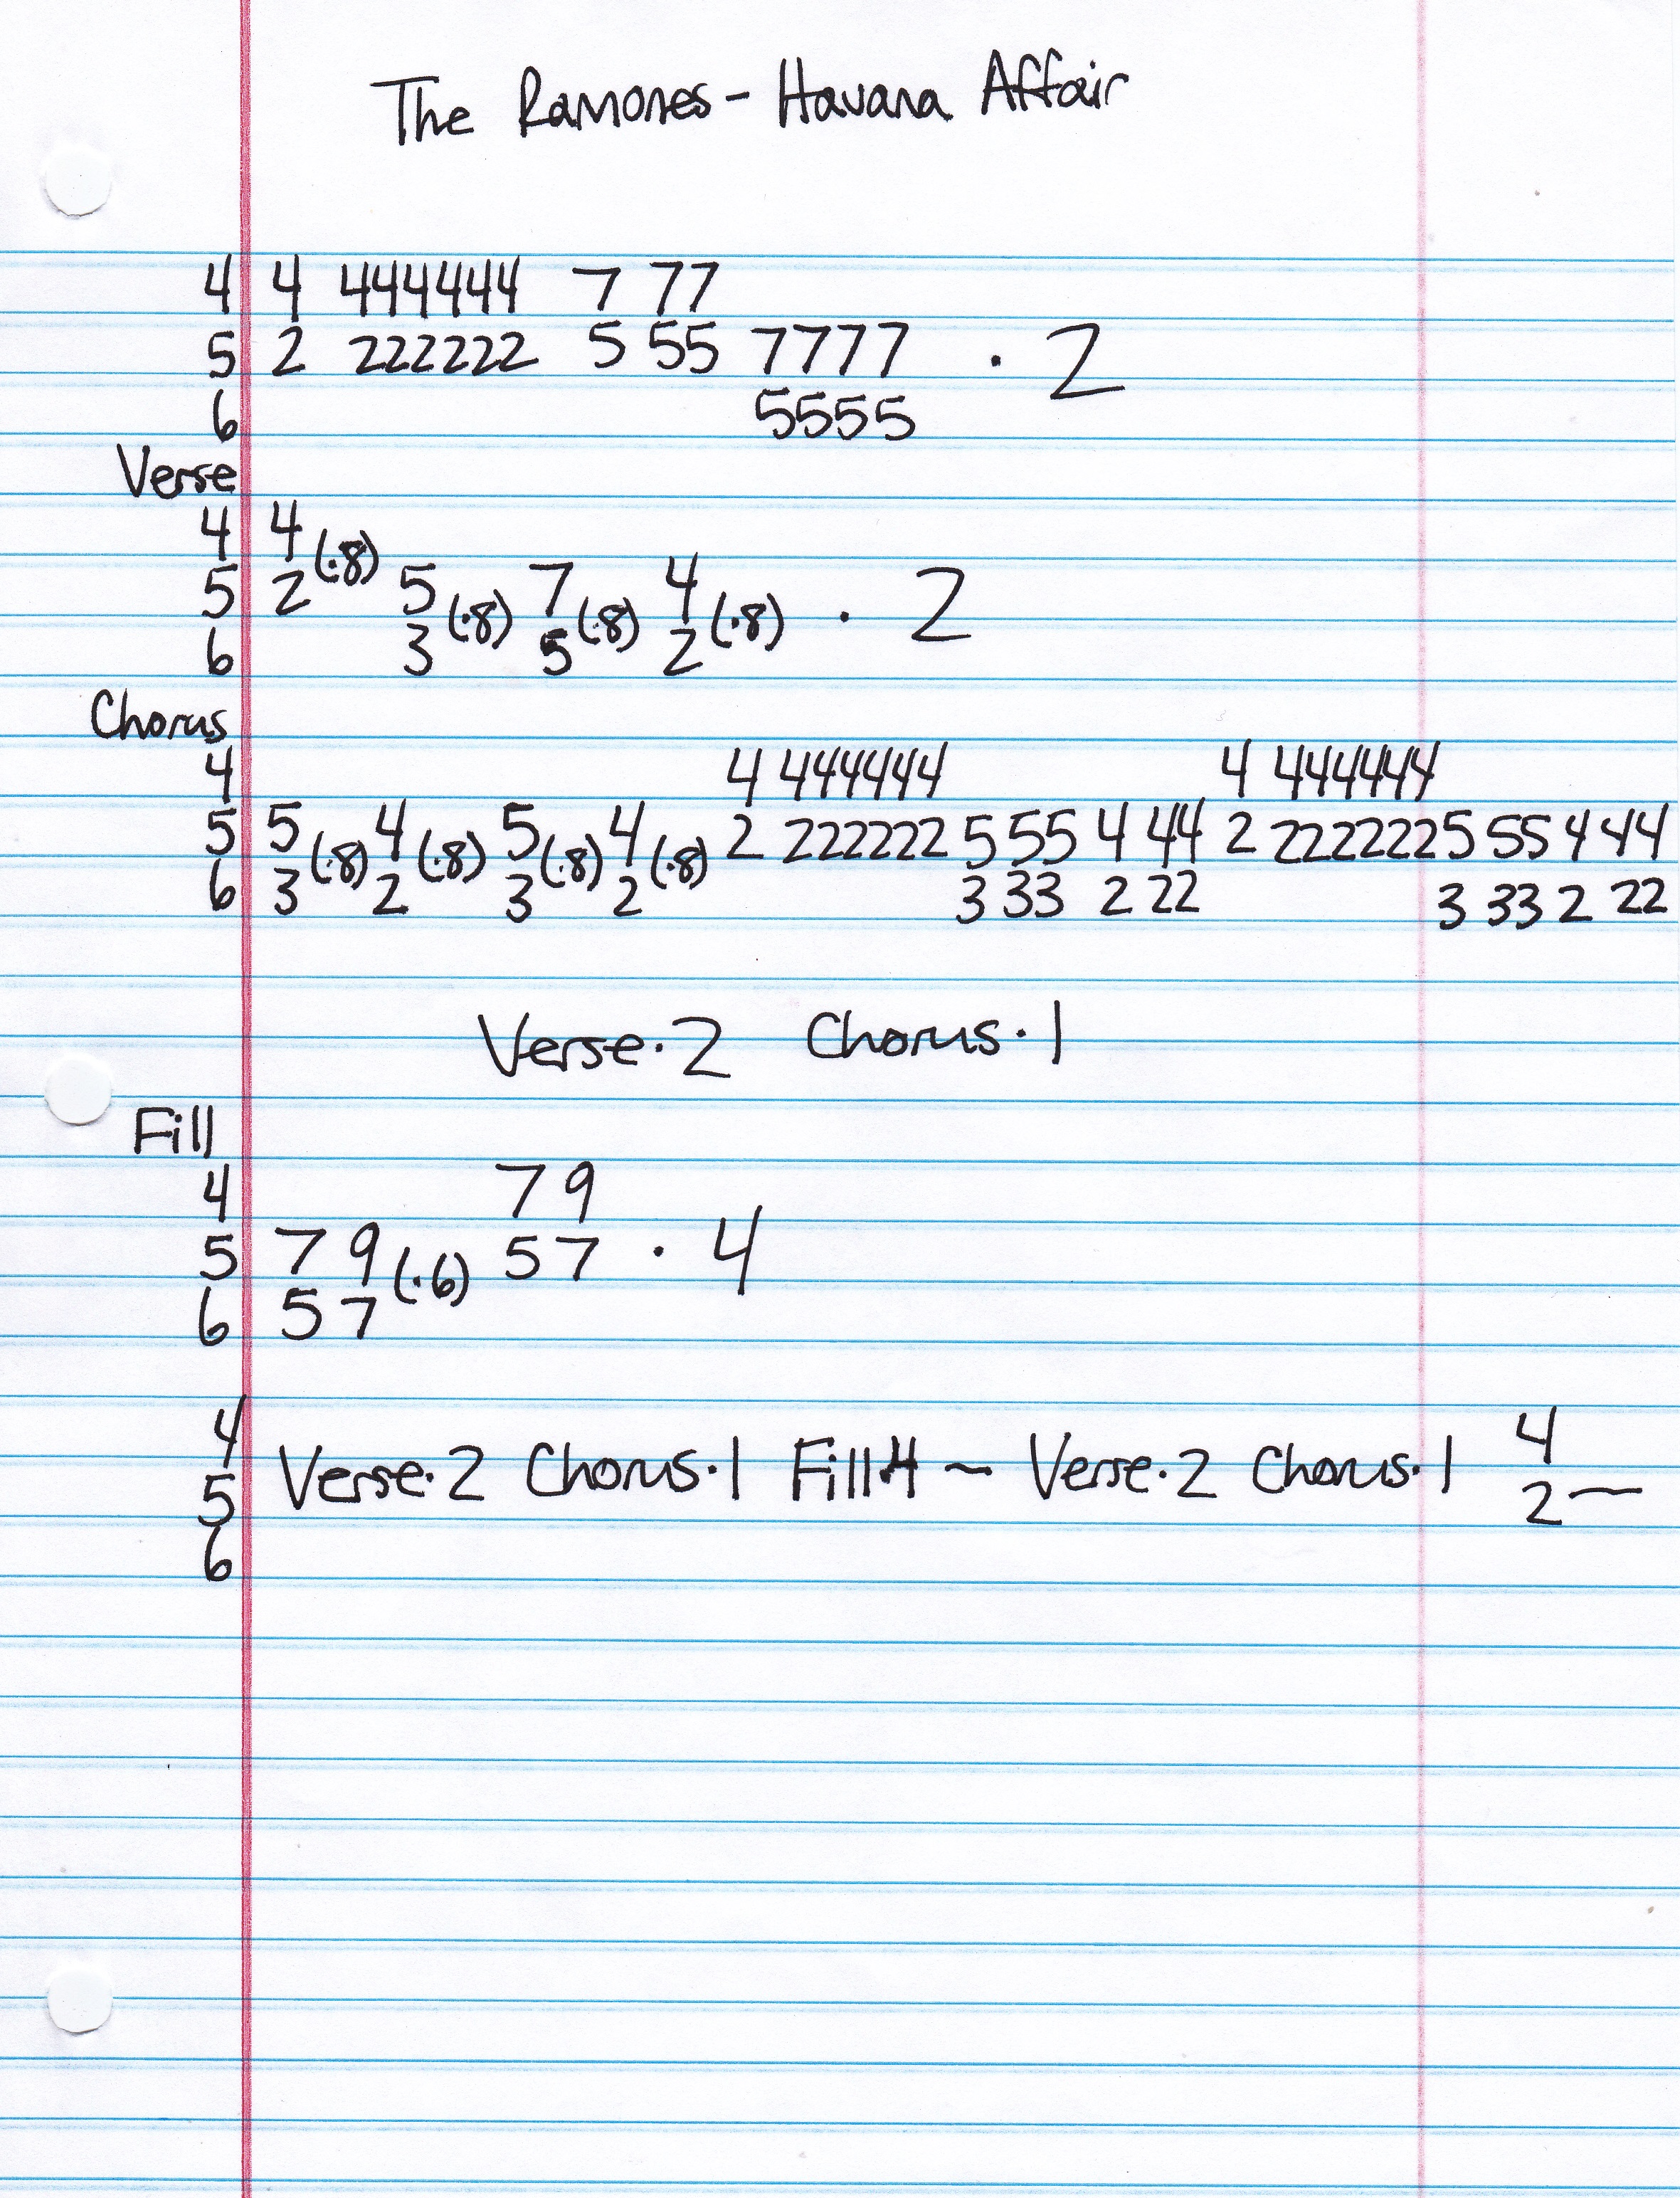 The Ramones - Havana Affair
4 4 444444 7 77
5 2 222222 5 55 7777 · 2
6 5555
Verse
4 4
5 2 (·8) 5 7 4 · 2
6 3 (·8) 5 (·8) 2 (·8)
Chorus
4 4 444444 4 444444
5 5 4 5 4 2 222222 5 55 4 44 2 222222 5 55 4 44
6 3 (·8) 2 (·8) 3 (·8) 2 (·8) 3 33 2 22 3 33 2 22
Verse·2 Chorus·1
Fill
4 7 9
5 7 9 (·6) 5 7 · 4
6 5 7
4 4
5 Verse·2 Chorus·1 Fill·4 ~ Verse·2 Chorus·1 2 ~
6